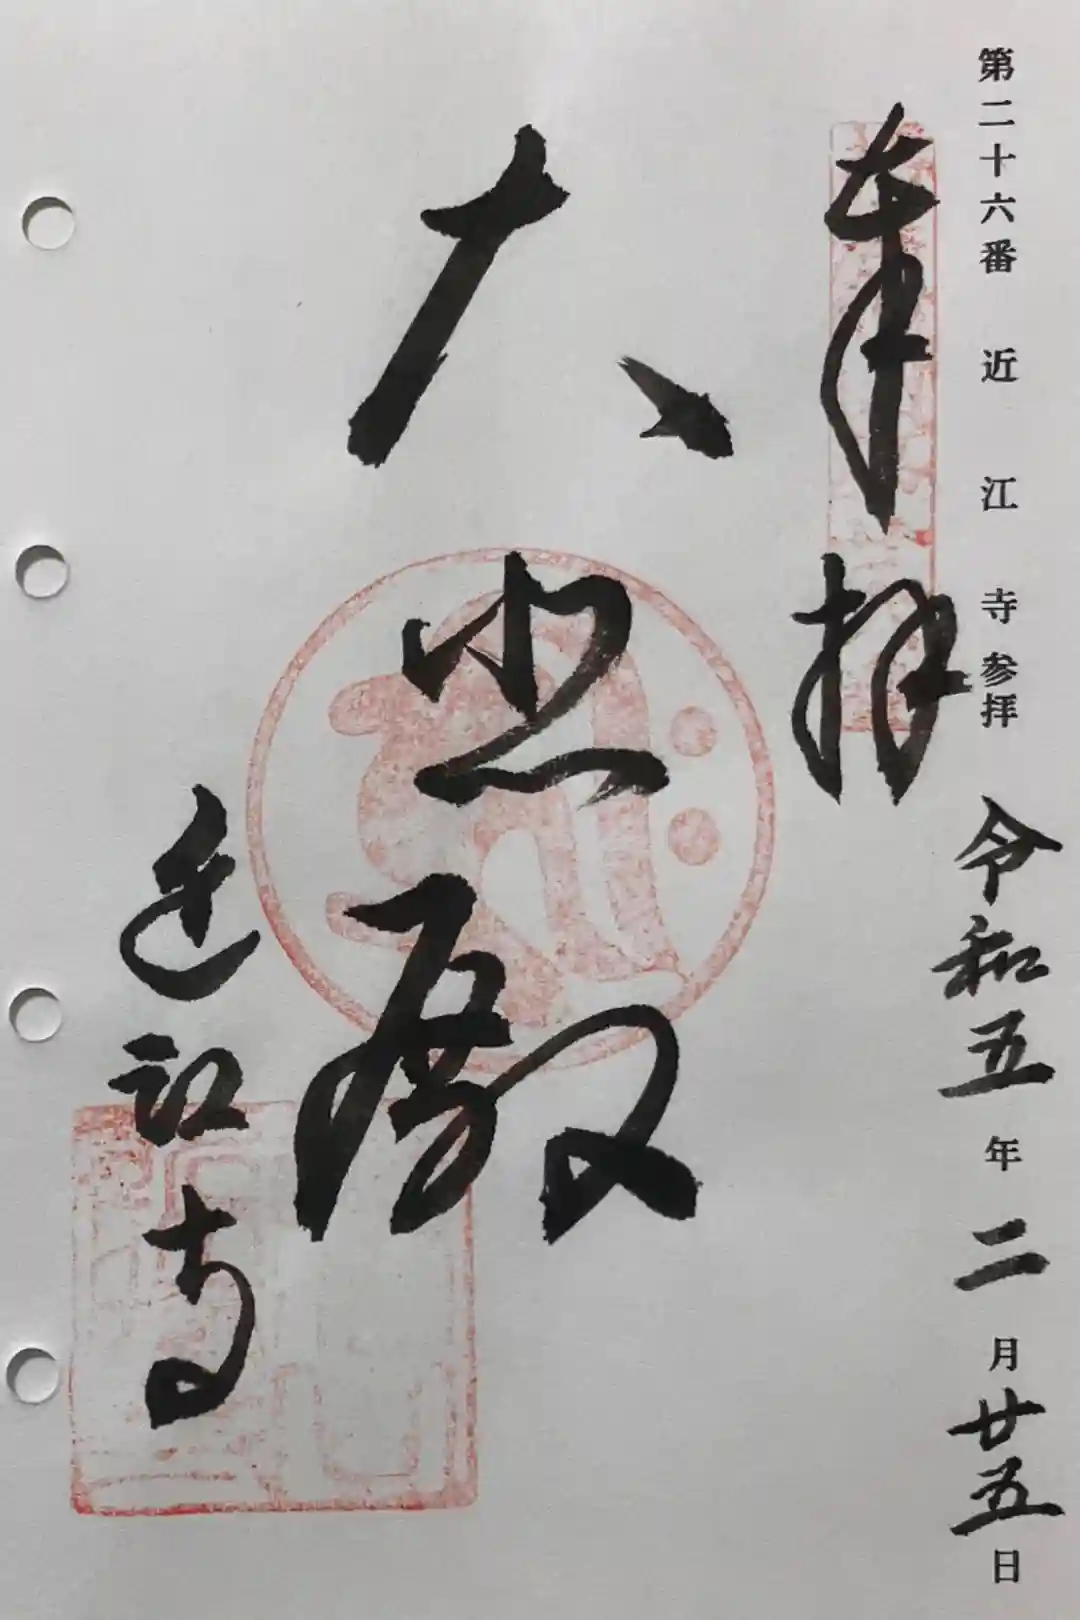 第二十六番 近江寺参拝 令和五年二月廿五日
奉拝
大悲殿
近江寺